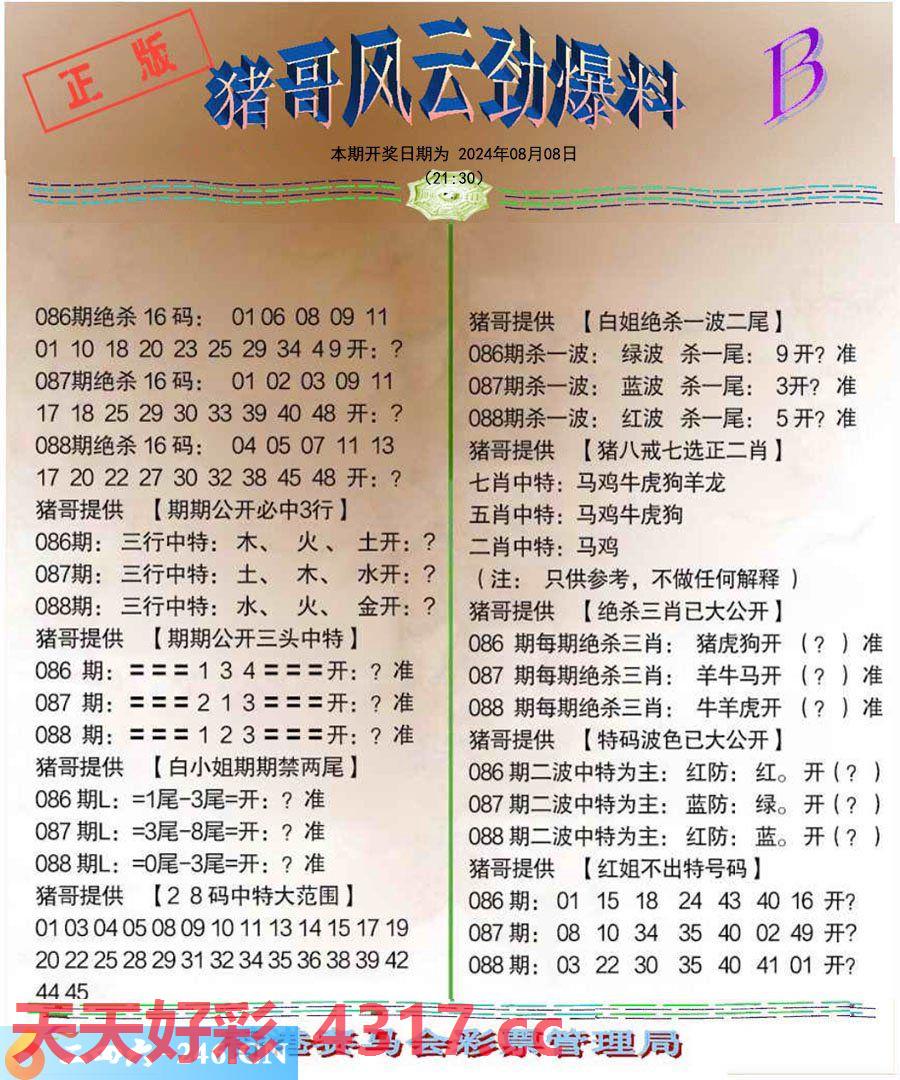 正版
猪哥风云劲爆料
B
本期开奖日期为 2024年08月08日
（21:30）
086期绝杀 16 码： 01 06 08 09 11
01 10 18 20 23 25 29 34 4 9 开：?
087期绝杀 16 码： 01 02 03 09 11
17 18 25 29 30 33 39 40 48 开：?
088期绝杀 16 码： 04 05 07 11 13
17 20 22 27 30 32 38 45 48 开：?
猪哥提供 【期期公开必中3行】
086期： 三行中特：木、 火 、 土开：?
087期： 三行中特：土、 木、 水开：?
088期： 三行中特：水、 火、 金开：?
猪哥提供 【期期公开三头中特】
086 期：===1 3 4===开：? 准
087 期：===2 1 3===开：? 准
088 期：===1 2 3===开：? 准
猪哥提供 【白小姐期期禁两尾】
086 期L：=1尾-3尾=开：? 准
087 期L：=3尾-8尾=开：? 准
088 期L：=0尾-3尾=开：? 准
猪哥提供 【2 8码中特大范围】
01 03 04 05 08 09 10 11 13 14 15 17 19
20 22 25 28 29 31 32 34 35 36 38 39 42
44 45
猪哥提供 【白姐绝杀一波二尾】
086期杀一波： 绿波 杀一尾： 9 开? 准
087期杀一波： 蓝波 杀一尾： 3开? 准
088期杀一波： 红波 杀一尾： 5 开? 准
猪哥提供 【猪八戒七选正二肖】
七肖中特：马鸡牛虎狗羊龙
五肖中特：马鸡牛虎狗
二肖中特：马鸡
（注： 只供参考，不做任何解释 ）
猪哥提供 【绝杀三肖已大公开】
086 期每期绝杀三肖： 猪虎狗开 （? ）准
087 期每期绝杀三肖： 羊牛马开 （? ）准
088 期每期绝杀三肖： 牛羊虎开 （? ）准
猪哥提供 【特码波色已大公开】
086 期二波中特为主： 红防： 红。 开（? ）
087 期二波中特为主： 蓝防： 绿。 开（? ）
088 期二波中特为主： 红防： 蓝。 开（? ）
猪哥提供 【红姐不出特号码】
086 期： 01 15 18 24 43 40 16 开?
087 期： 08 10 34 35 40 02 49 开?
088 期： 03 22 30 35 40 41 01 开?
天天好彩 4317.cc
马会彩票管理局